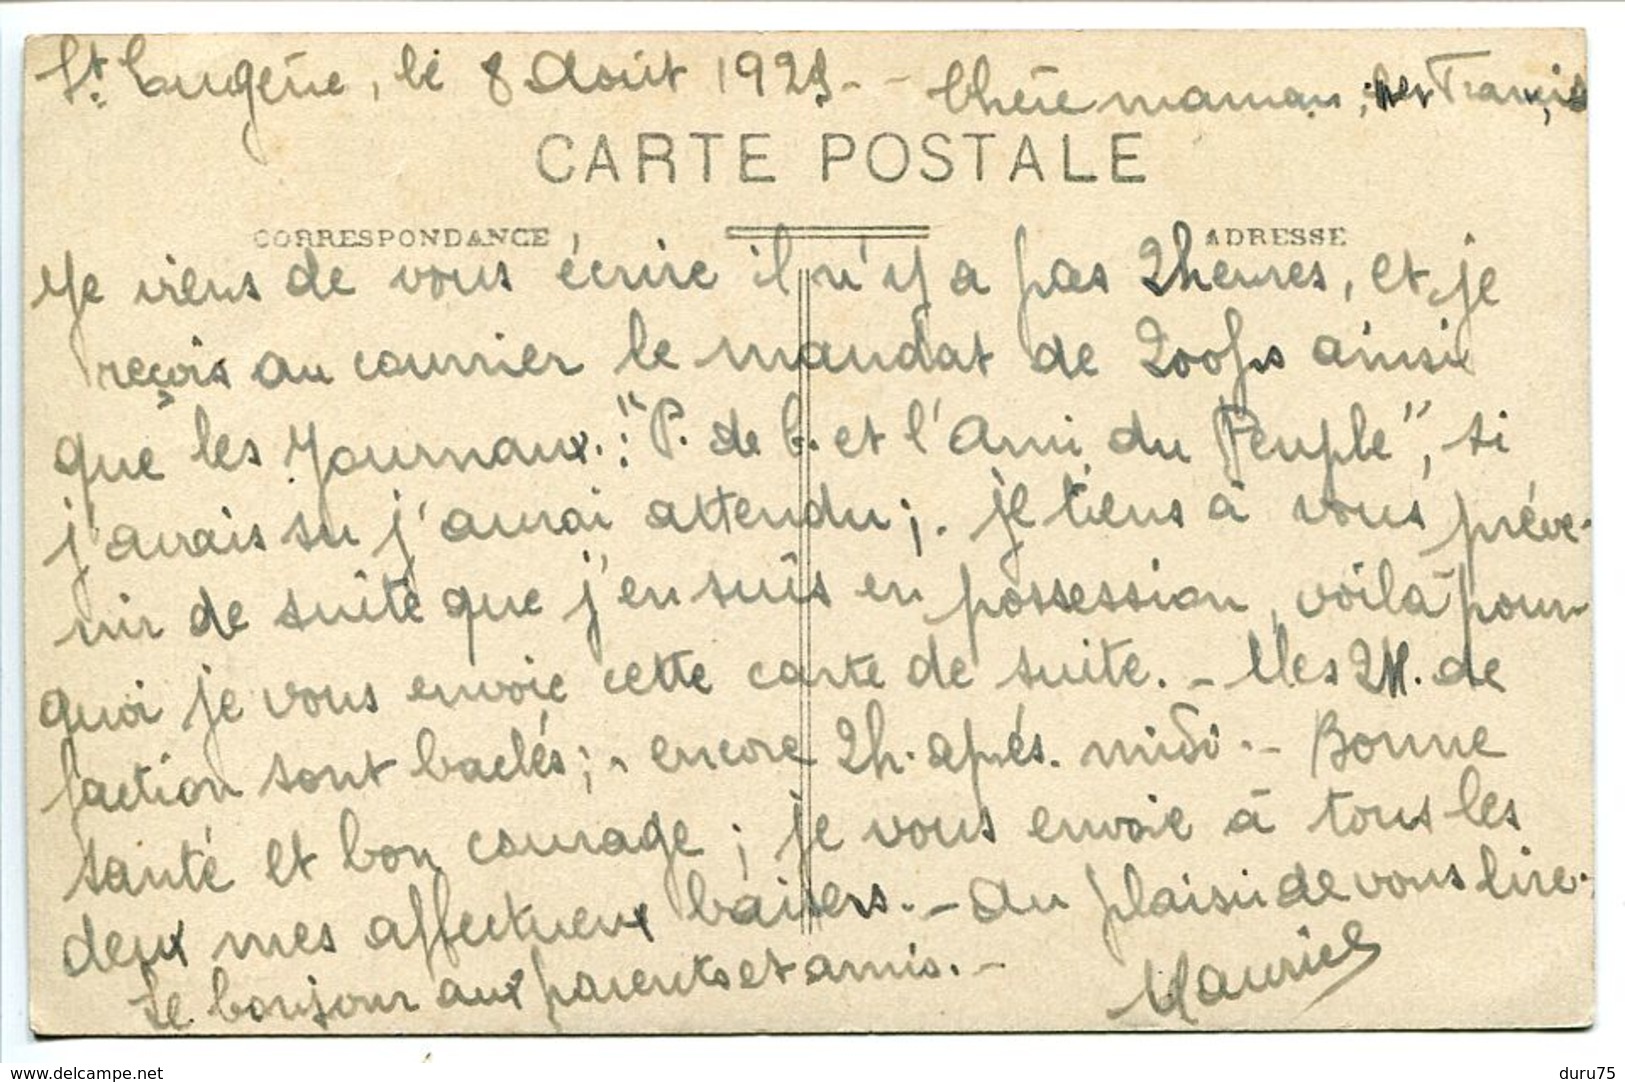 St. Eugène, le 8 Août 1929 - - Chère maman, cher Francis
CARTE POSTALE
CORRESPONDANCE
ADRESSE
Je viens de vous écrire il n'y a pas 2 heures, et je
reçois au courrier le mandat de 200 frs ainsi
que les Journaux : "P. de C. et l'Ami du Peuple", si
j'avais su j'aurai attendu ; . je tiens à vous préve-
nir de suite que j'en suis en possession, voilà pour-
quoi je vous envoie cette carte de suite. - Mes 2H. de
faction sont baclés ; - encore 2h. après. midi. - Bonne
santé et bon courage ; je vous envoie à tous les
deux mes affectueux baisers. - Au plaisir de vous lire.
Le bonjour aux parents et amis. -
Maurice
www.delcampe.net
duru75